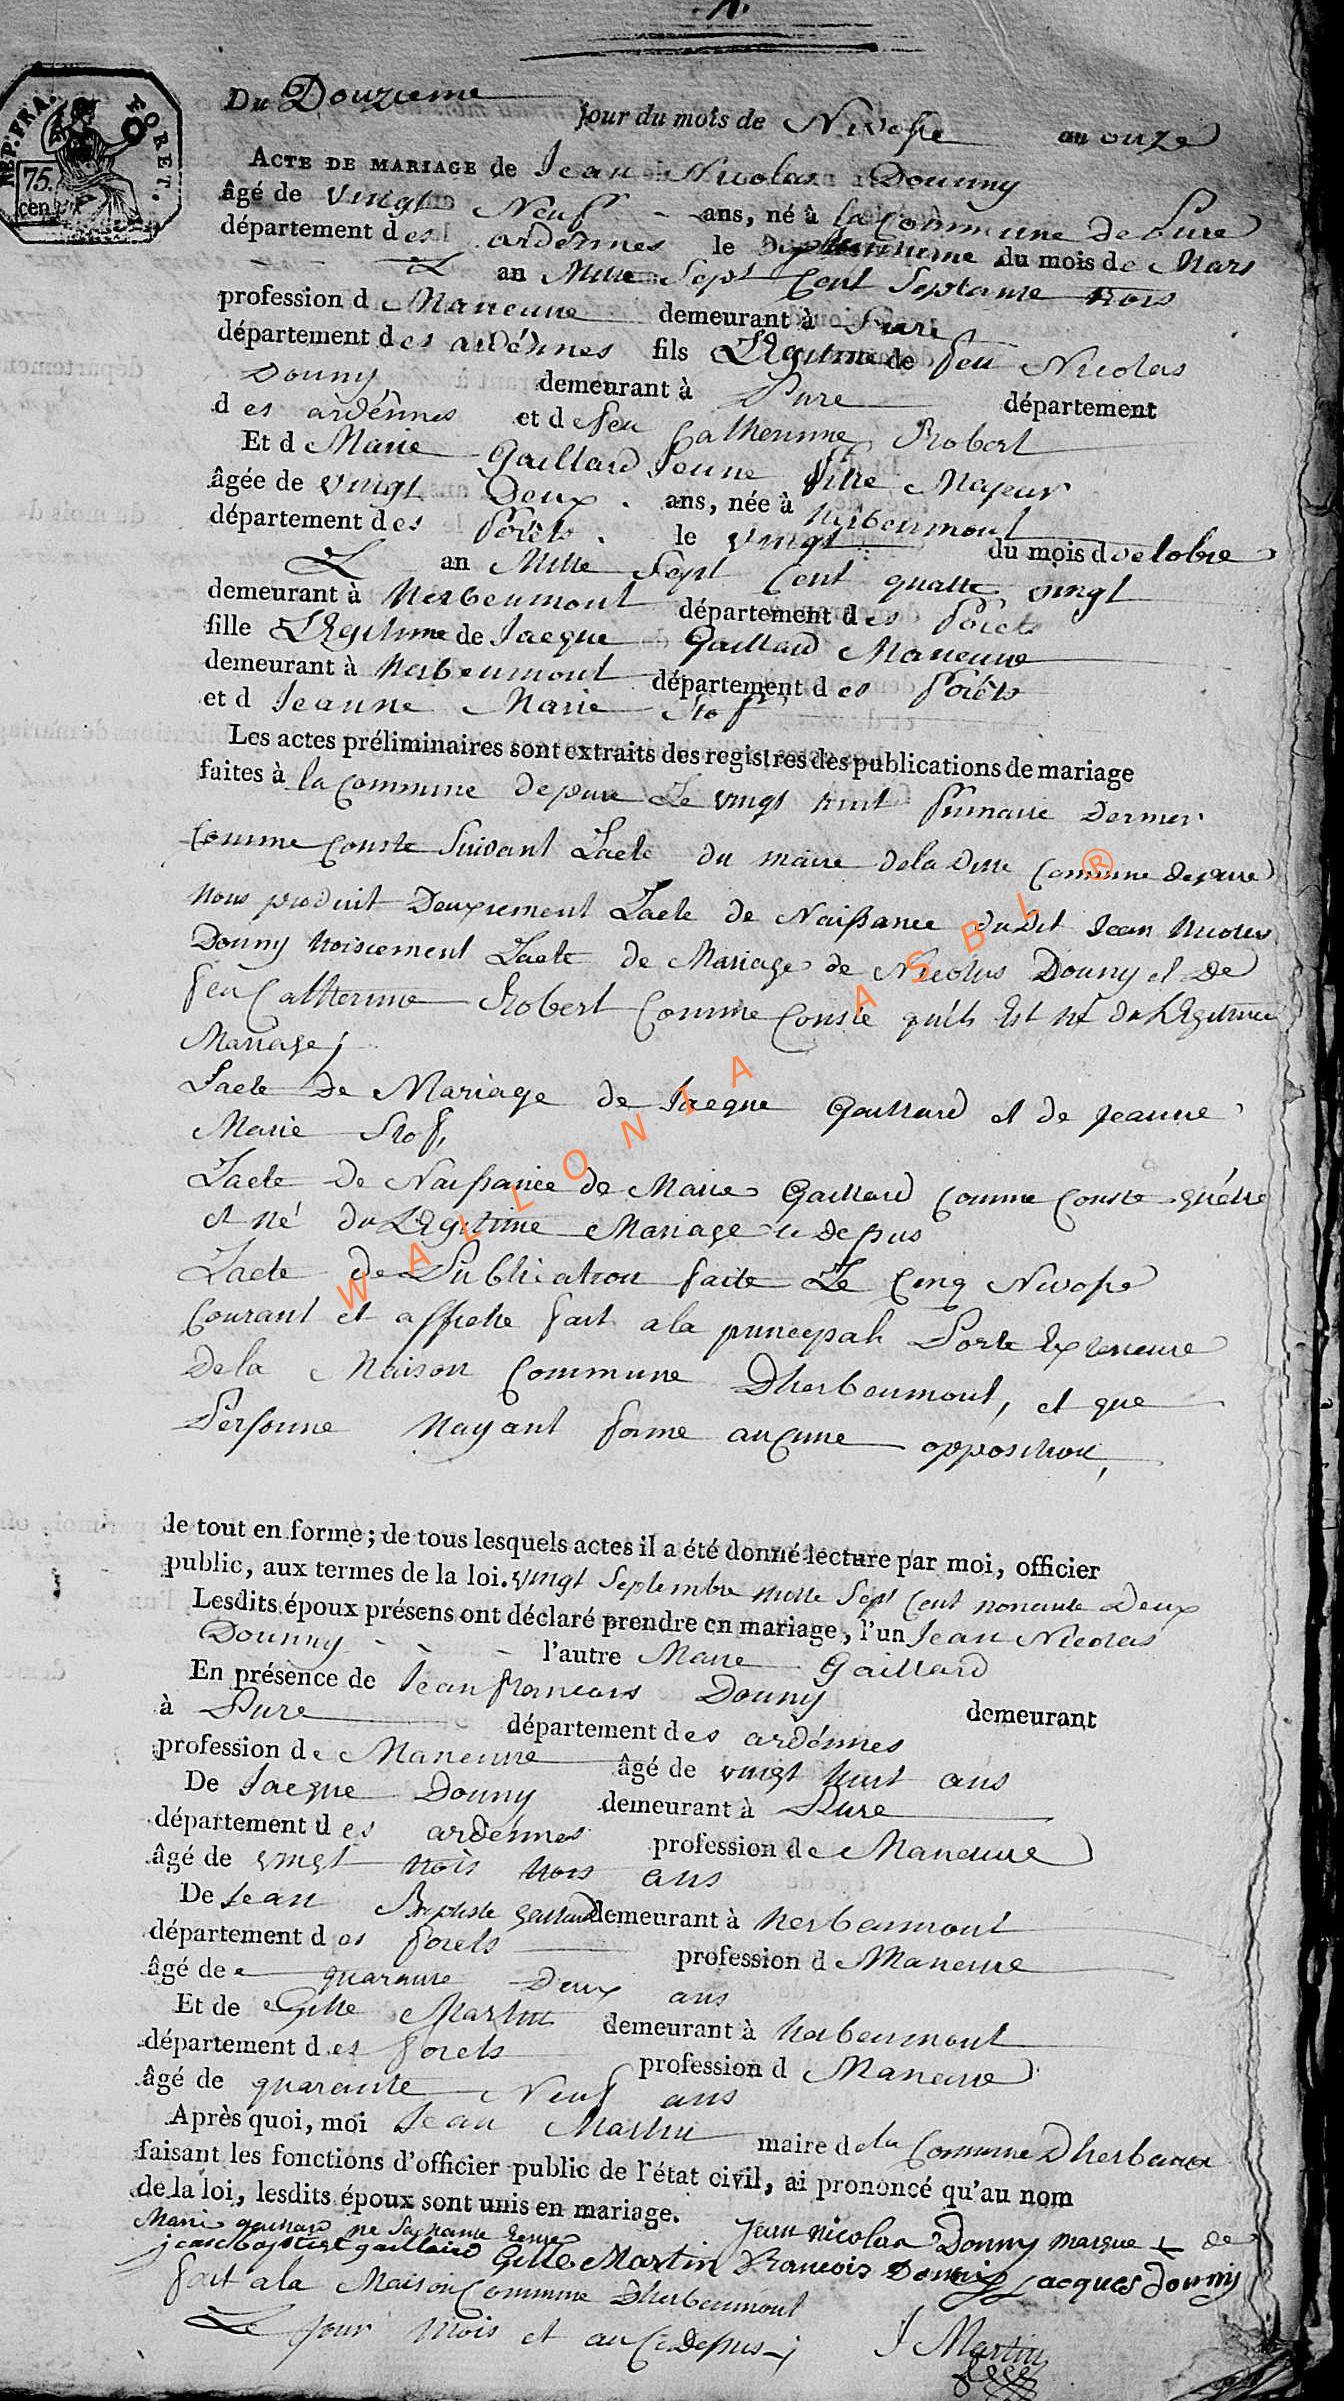 REP. FRA. FORET.
75. cen.
Du Douzieme jour du mois de Nivose an onze
ACTE DE MARIAGE de Jean Nicolas Dounny
âgé de vingt Neuf ans, né à la Commune de Pure
département des ardennes le du mois de Mars
L an Mille Sept Cent Septante trois
profession d Maneuve demeurant à Pure
département des ardénnes fils LEgitime de feu Nicolas
Douny demeurant à Pure département
des ardénnes et de feu Catherinne Robert
Et d Marie Gaillard Jeune fille Majeur
âgée de vingt Deux ans, née à herbeumont
département des forêts le vingt du mois d octobre
L an Mille Sept Cent quatte vingt
demeurant à herbeumont département des forêts
fille LEgitime de Jacque Gaillard Maneuve
demeurant à herbeumont département des forêts
et d Jeanne Marie Stof
Les actes préliminaires sont extraits des registres des publications de mariage
faites à la Commune de pure Le vingt huit frimaire dernier
Comme Conste Suivant Lacte du maire dela ditte Commune depure
nous produit Deuxiement Lacte de Naissance dudit Jean Nicolas
Douny troisiement Lacte de Mariage de Nicolas Douny et De
feu Catherinne Robert Comme Conste quils Est né du LEgitime
Mariage;
Lacte De Mariage de Jacque Gaillard et de Jeanne
Marie Stof,
Lacte De Naissance de Marie Gaillard Comme Conste quélle
et né du LEgitime Mariage ci depus
Lacte de Publication faite Le Cinq Nivose
Courant et affiche fait ala principale Porte Exterieure
Dela Maison Commune Dherbeumont, et que
Personne Nayant forme auCune opposition,
le tout en forme; de tous lesquels actes il a été donné lecture par moi, officier
public, aux termes de la loi. vingt Septembre mille Sept Cent nonante Deux
Lesdits époux présens ont déclaré prendre en mariage, l'un Jean Nicolas
Dounny l'autre Marie Gaillard
En présence de Jean francois Douny demeurant
à Pure département des ardénnes
profession de Maneuve âgé de vingt huit ans
De Jacque Douny demeurant à Pure
département des ardénnes profession de Maneuve
âgé de vingt trois trois ans
De Jean Baptiste gaillard demeurant à herbeumont
département des forets profession d Maneuve
âgé de quarante Deux ans
Et de Gille Martin demeurant à herbeumont
département des forets profession d Maneuve
âgé de quarante Neuf ans
Après quoi, moi Jean Martin maire dela Commune Dherbeumont
faisant les fonctions d'officier public de l'état civil, ai prononcé qu'au nom
de la loi, lesdits époux sont unis en mariage.
Jean nicolas Douny marque + de
Marie gaillard ne Sachante
jean baptiste gaillaird Gille Martin francois Douny jacques Douny
fait ala Maison Commune Dherbeumont
Le jour mois et an Ci Depus;
J Martin
WALLONIA ASBL ®